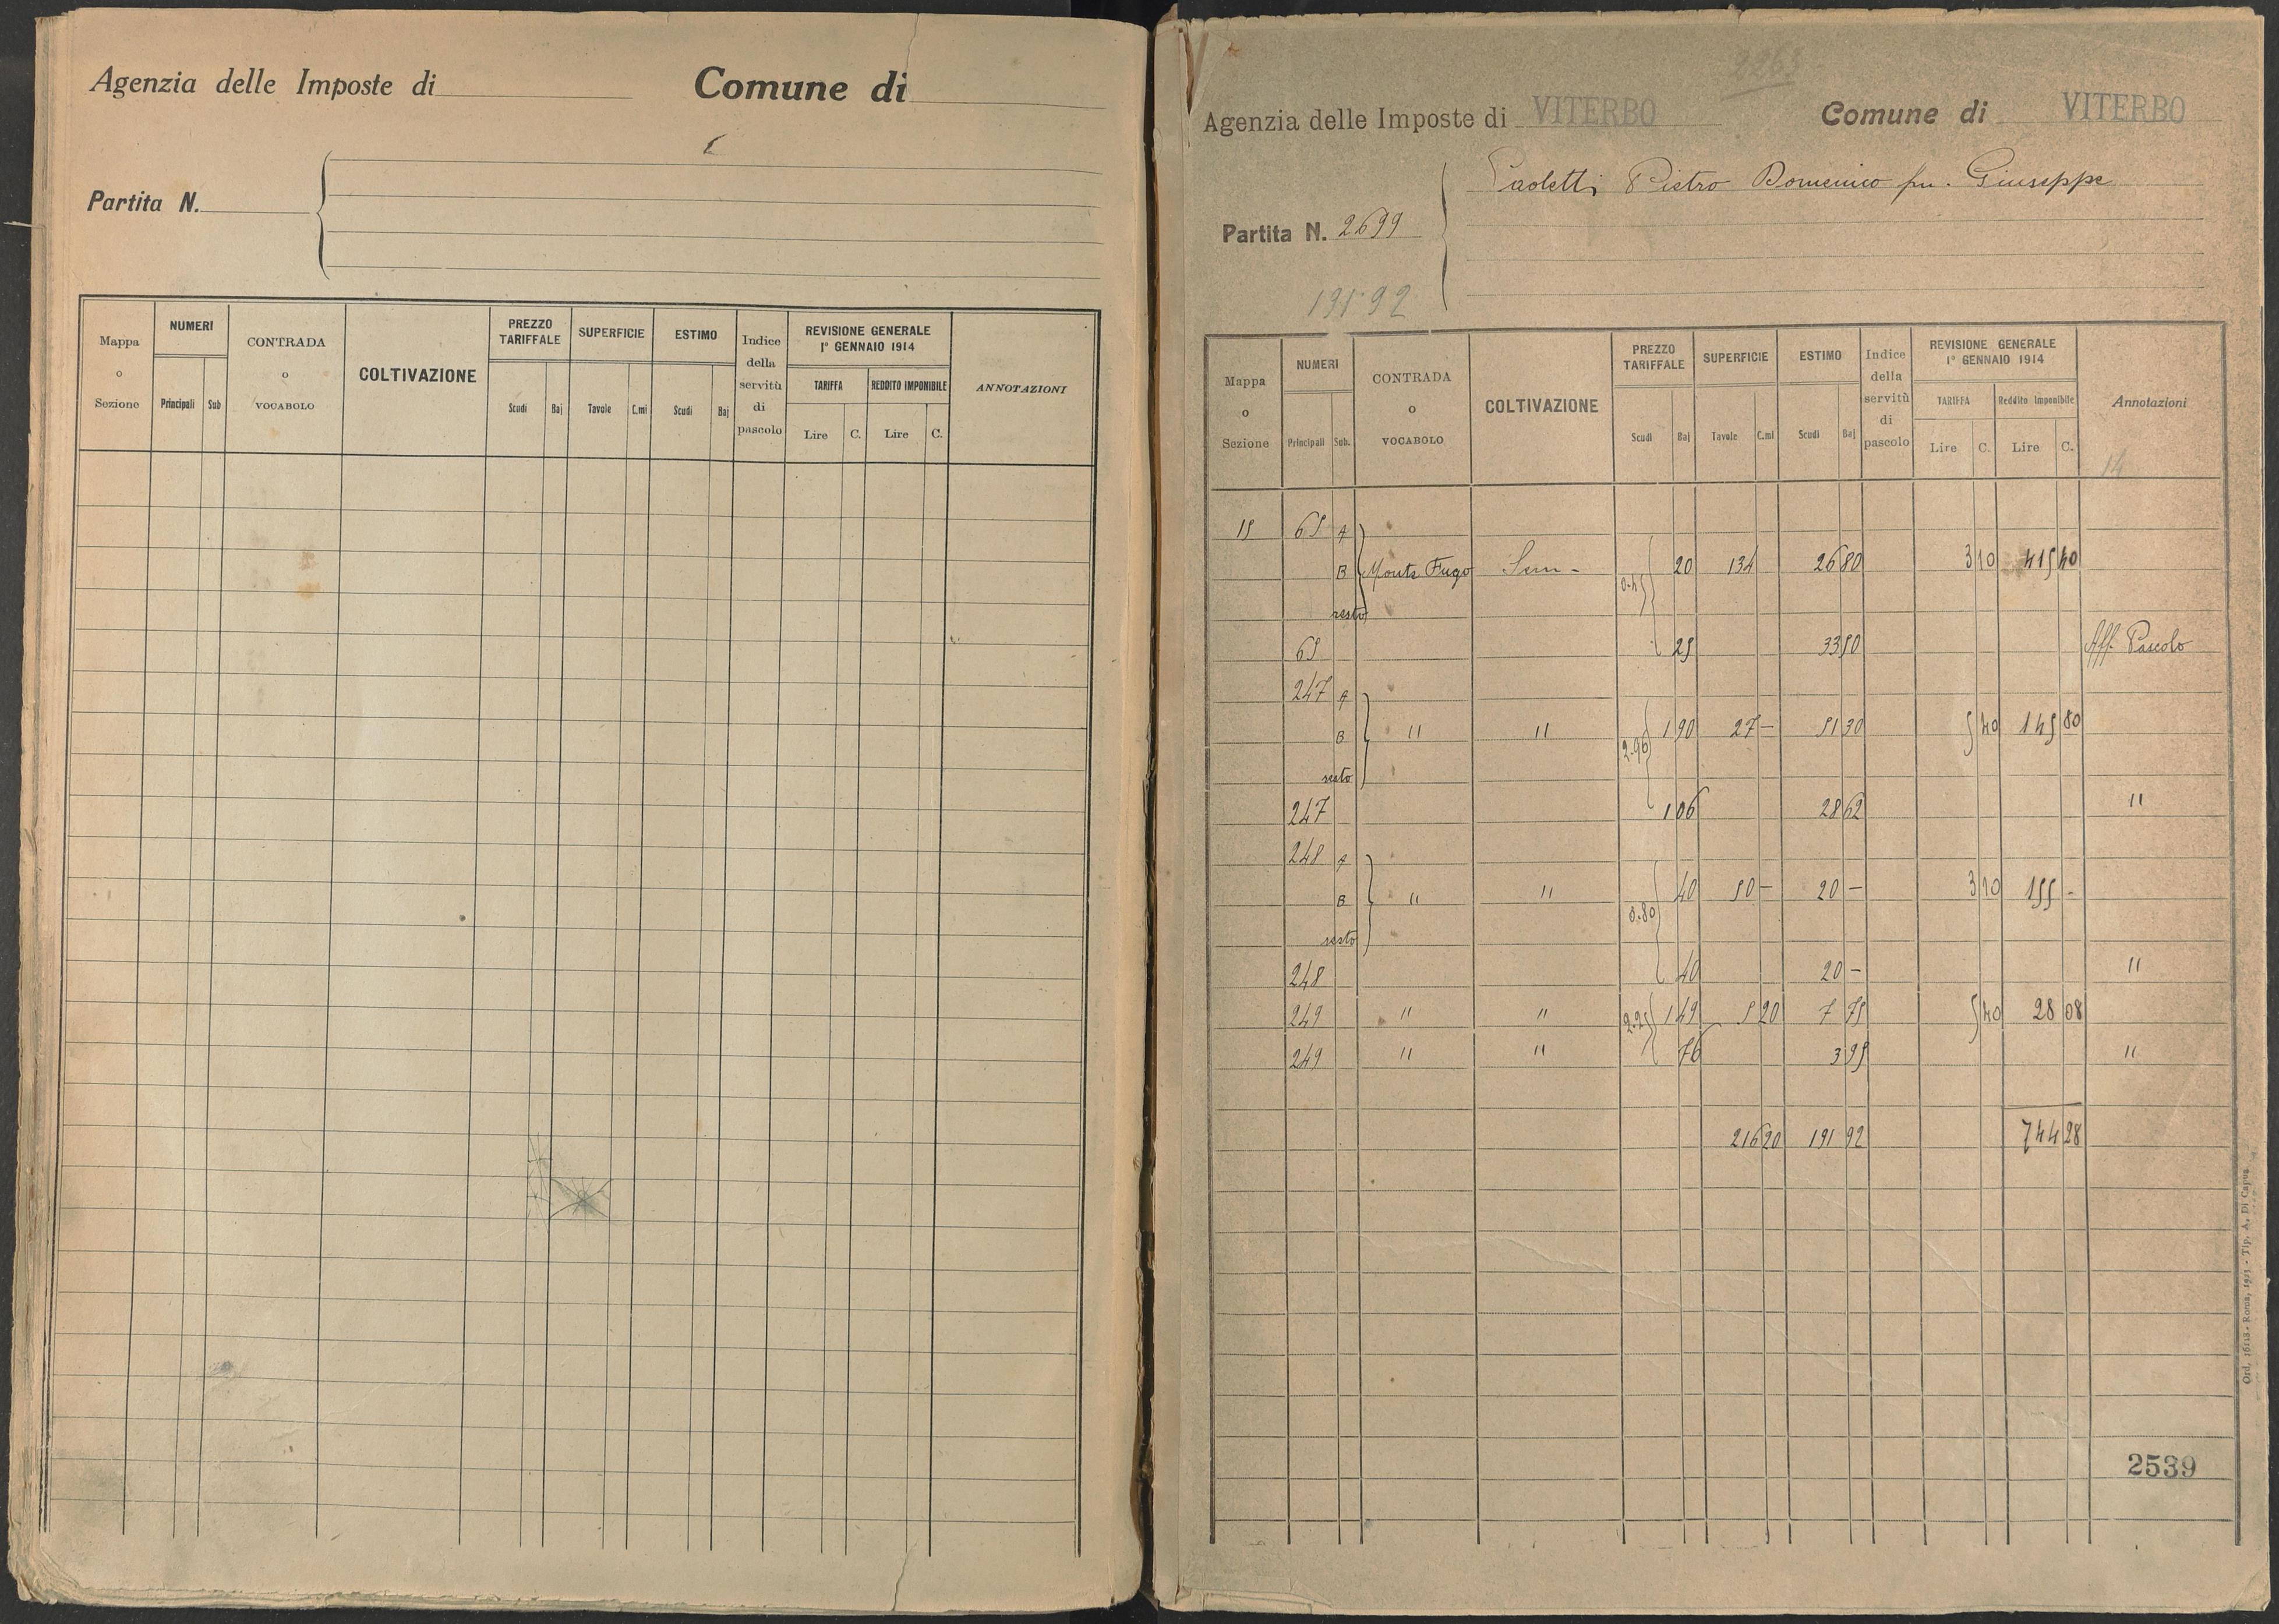 Agenzia delle Imposte di Comune di
Partita N.
Mappa o Sezione NUMERI Principali Sub CONTRADA o VOCABOLO COLTIVAZIONE PREZZO TARIFFALE Scudi Baj SUPERFICIE Tavole C.mi ESTIMO Scudi Baj Indice della servitù di pascolo REVISIONE GENERALE 1° GENNAIO 1914 TARIFFA Lire C. REDDITO IMPONIBILE Lire C. ANNOTAZIONI
2263
Agenzia delle Imposte di VITERBO Comune di VITERBO
Paoletti Pietro Domenico fu. Giuseppe
Partita N. 2699
191.92
Mappa o Sezione NUMERI Principali Sub. CONTRADA o VOCABOLO COLTIVAZIONE PREZZO TARIFFALE Scudi Baj SUPERFICIE Tavole C.mi ESTIMO Scudi Baj Indice della servitù di pascolo REVISIONE GENERALE 1° GENNAIO 1914 TARIFFA Lire C. Reddito Imponibile Lire C. Annotazioni
14
15 65 A
B Monte Fugo Sem - 20 134 26 80 3 10 415 40
0.45
resto
65 25 33 50 Aff. Pascolo
247 A
B " " 1 90 27 - 51 30 5 40 145 80
2.96
resto
247 1 06 28 62 "
248 A
B " " 40 50 - 20 - 3 10 155 -
0.80
resto
248 40 20 - "
249 " " 2.25 1 49 5 20 7 75 5 40 28 08
249 " " 76 3 95 "
216 20 191 92 744 28
2539
Ord. 16118 - Roma, 1923 - Tip. A. Di Capua